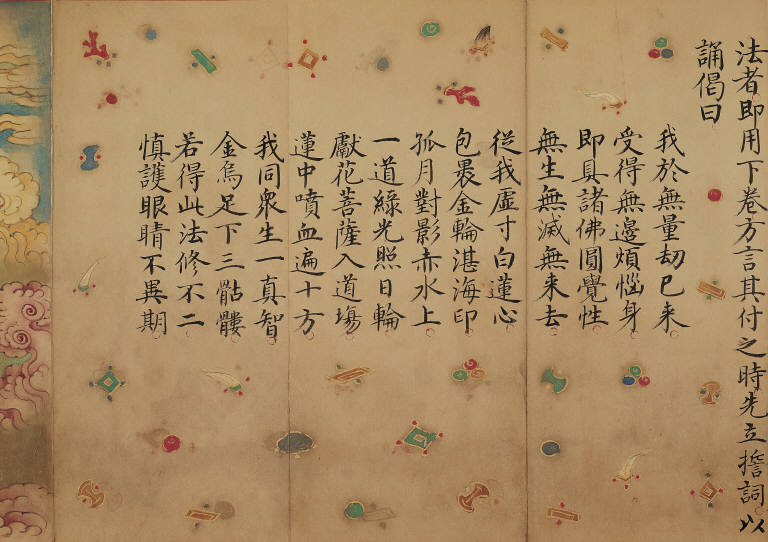 法者即用下卷方言其付之時先立擔詞以
誦偈曰
我於無量劫已来
受得無邊煩惱身
即具諸佛圓覺性
無生無滅無来去
從我虛寸白蓮心
包裹金輪湛海印
孤月對影赤水上
一道緑光照日輪
獻花菩薩入道場
蓮中噴血遍十方
我同衆生一真智
金烏足下三骷髏
若得此法修不二
慎護眼睛不異期